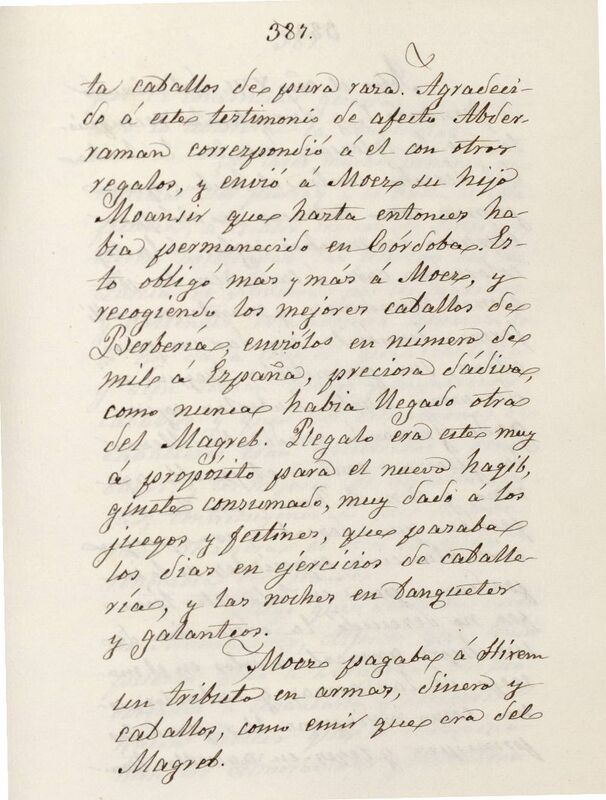 387.
ta caballos de pura raza. Agradeci-
do á este testimonio de afecto Abder-
raman correspondió á el con otros
regalos, y envió á Moez su hijo
Moansir que hasta entonces ha
bia permanecido en Córdoba. Es-
to obligó más y más á Moez, y
recogiendo los mejores caballos de
Berbería, enviólos en número de
mil á España, preciosa dádiva,
como nunca habia llegado otra
del Magreb. Regalo era este muy
á propósito para el nuevo hagib,
ginete consumado, muy dado á los
juegos y festines, que pasaba
los dias en ejercicios de caballe-
ría, y las noches en banquetes
y galanteos.
Moez pagaba á Hixem
un tributo en armas, dinero y
caballos, como emir que era del
Magreb.